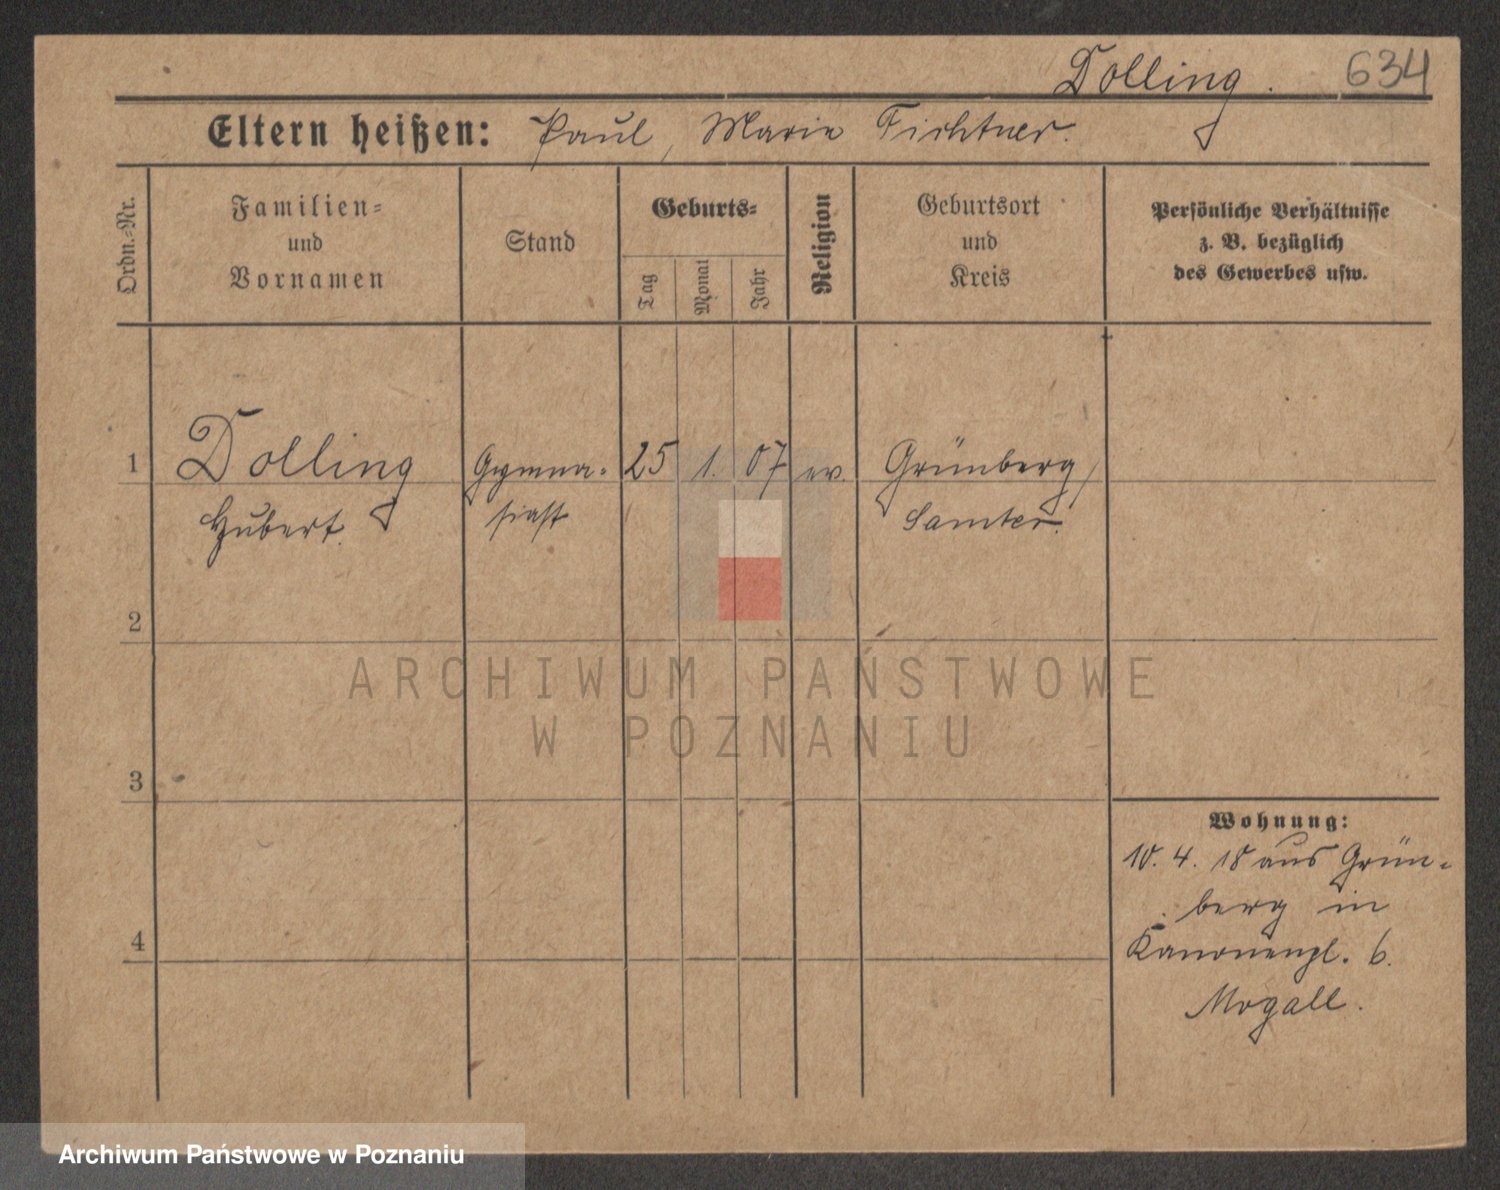 Dolling. 634
Eltern heißen: Paul, Marie Fichtner.
Ordn.-Nr.
Familien-
und
Vornamen
Stand
Geburts-
Tag
Monat
Jahr
Religion
Geburtsort
und
Kreis
Persönliche Verhältnisse
z. B. bezüglich
des Gewerbes usw.
1 Dolling Gymna- 25 1. 07 ev. Grünberg,
Hubert. siast Samter.
2
3
4
Wohnung:
10. 4. 18 aus Grün-
berg in
Kanonenpl. 6.
Mogall.
ARCHIWUM PAŃSTWOWE
W POZNANIU
Archiwum Państwowe w Poznaniu